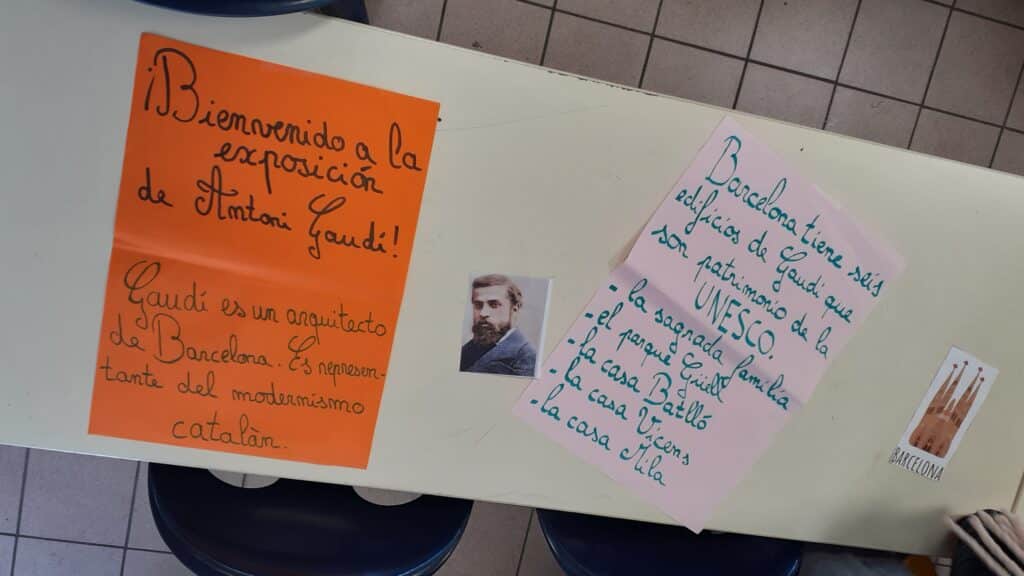 ¡Bienvenido a la
exposición
de Antoni Gaudí!
Gaudí es un arquitecto
de Barcelona. Es represen-
tante del modernismo
catalàn.
Barcelona tiene séis
edificios de Gaudí que
son patrimonio de la
UNESCO.
- la sagrada família
- el parque Güell
- la casa Batlló
- la casa Vicens
- la casa Mila
BARCELONA